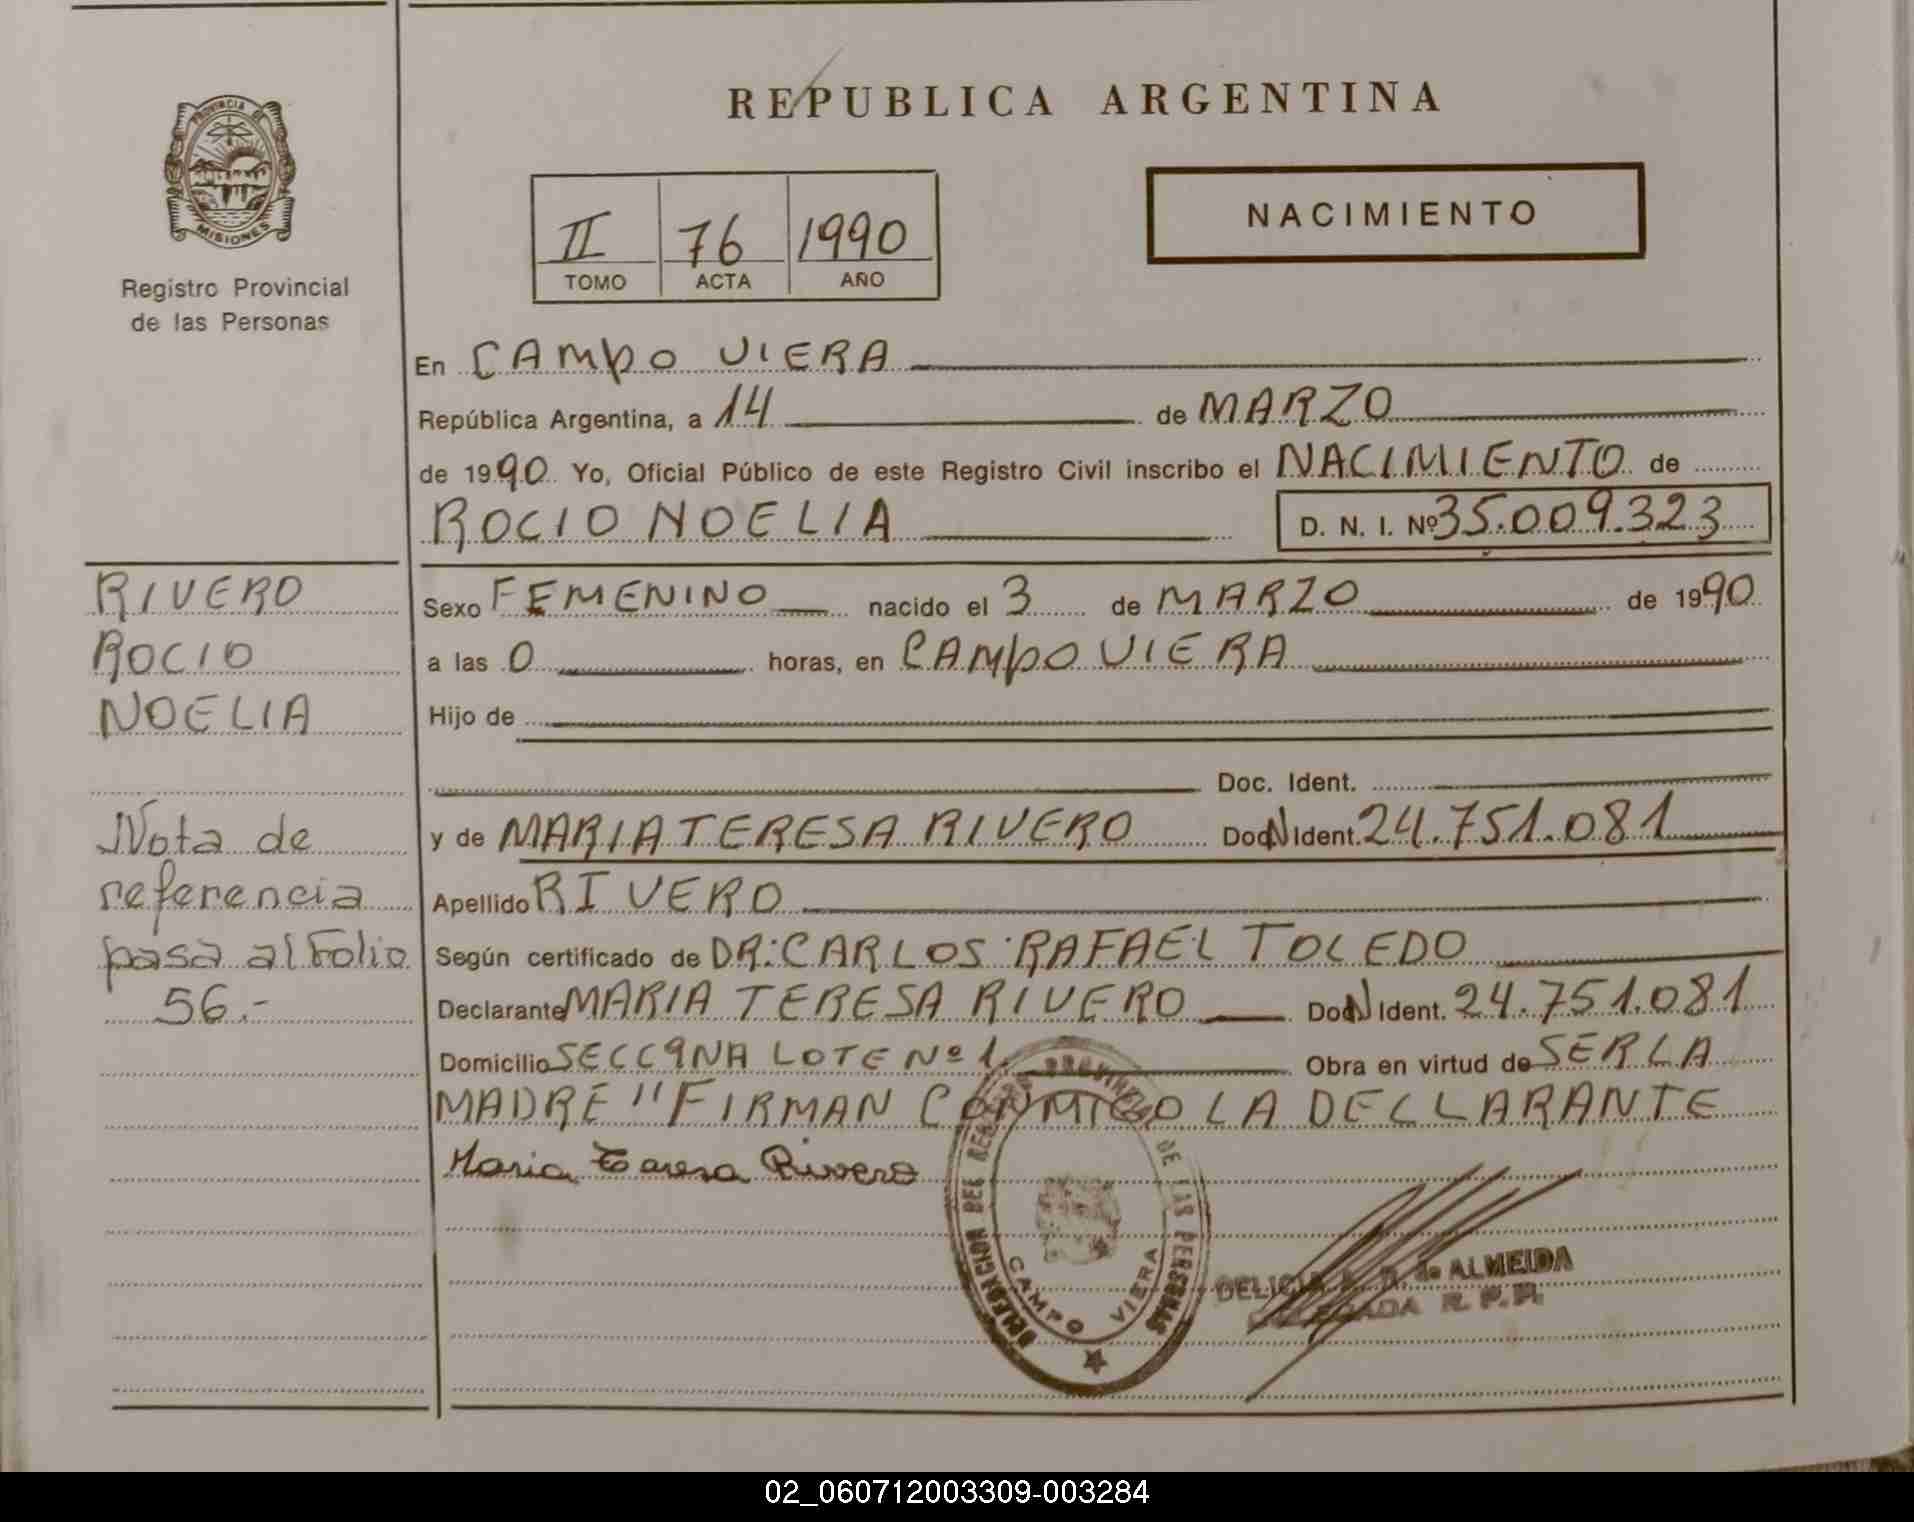 REPUBLICA ARGENTINA
PROVINCIA DE
MISIONES
Registro Provincial
de las Personas
II 76 1990
TOMO ACTA AÑO
NACIMIENTO
En CAMPO VIERA
República Argentina, a 14 de MARZO
de 1990 Yo, Oficial Público de este Registro Civil inscribo el NACIMIENTO de
ROCIO NOELIA D. N. I. Nº 35.009.323
RIVERO
ROCIO
NOELIA
Nota de
referencia
pasa al Folio
56.-
Sexo FEMENINO nacido el 3 de MARZO de 1990
a las 0 horas, en CAMPO VIERA
Hijo de
Doc. Ident.
y de MARIA TERESA RIVERO DocN Ident. 24.751.081
Apellido RIVERO
Según certificado de DR: CARLOS RAFAEL TOLEDO
Declarante MARIA TERESA RIVERO DocN Ident. 24.751.081
Domicilio SECC 9NA LOTE Nº 1. Obra en virtud de SER LA
MADRE " FIRMAN CONMIGO LA DECLARANTE
Maria Teresa Rivero
DELEGACION DEL REGISTRO PROVINCIAL DE LAS PERSONAS
CAMPO VIERA
DELICIA de ALMEIDA
DELEGADA R. P. P.
02_060712003309-003284